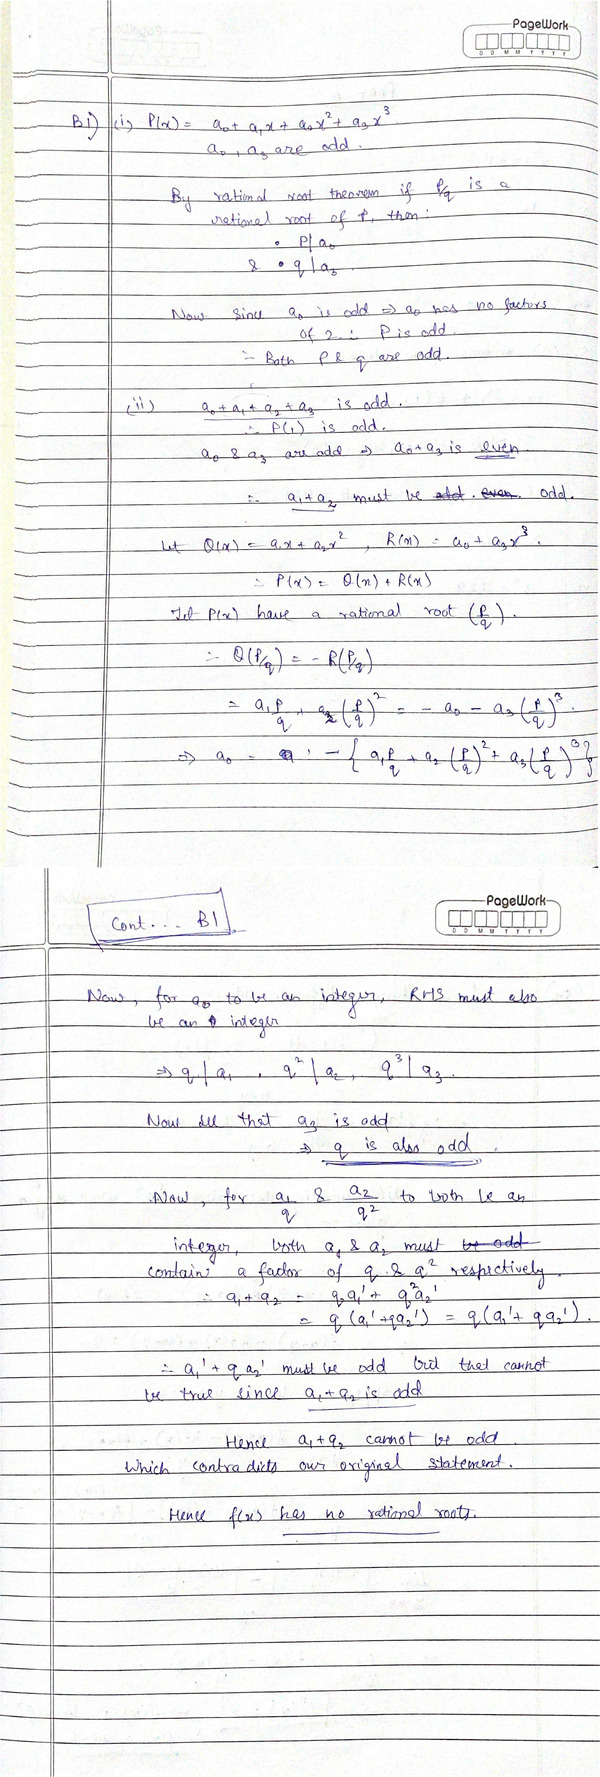 PageWork
D D M M Y Y Y Y
B1) (i) P(x) = a₀ + a₁x + a₂x² + a₃x³
a₀, a₃ are odd.
By rational root theorem if P/q is a
rational root of P, then:
• P|a₀
& • q|a₃
Now since a₀ is odd ⇒ a₀ has no factors
of 2 ∴ P is odd
∴ Both P & q are odd.
(ii) a₀ + a₁ + a₂ + a₃ is odd.
∴ P(1) is odd.
a₀ & a₃ are odd ⇒ a₀ + a₃ is even
∴ a₁ + a₂ must be odd. even odd.
Let Q(x) = a₁x + a₂x², R(x) = a₀ + a₃x³.
∴ P(x) = Q(x) + R(x)
Let P(x) have a rational root (P/q).
∴ Q(P/q) = - R(P/q)
= a₁P/q + a₂(P/q)² = - a₀ - a₃(P/q)³.
⇒ a₀ = - { a₁P/q + a₂(P/q)² + a₃(P/q)³ }
PageWork
D D M M Y Y Y Y
Cont... B1
Now, for a₀ to be an integer, RHS must also
be an integer
⇒ q|a₁, q²|a₂, q³|a₃.
Now see that a₃ is odd
⇒ q is also odd.
Now, for a₁/q & a₂/q² to both be an
integer, both a₁ & a₂ must be odd
contain a factor of q & q² respectively.
∴ a₁ + a₂ = qa₁' + q²a₂'
= q(a₁' + qa₂') = q(a₁' + qa₂').
∴ a₁' + qa₂' must be odd but that cannot
be true since a₁ + a₂ is odd
Hence a₁ + a₂ cannot be odd.
Which contradicts our original statement.
Hence f(x) has no rational roots.